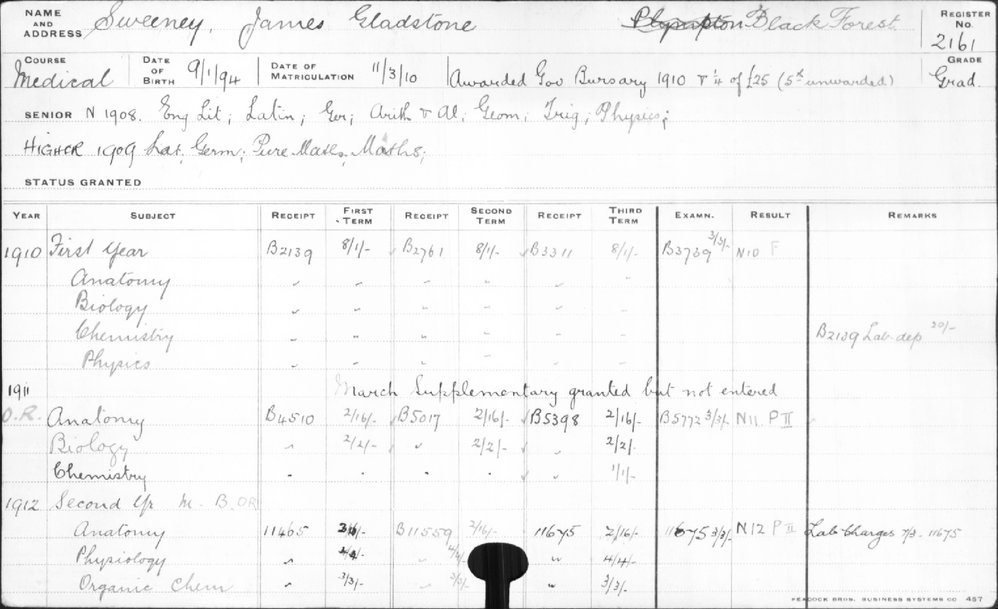 NAME AND ADDRESS Sweeney, James Gladstone Plympton Black Forest REGISTER No. 2161
COURSE Medical DATE OF BIRTH 9/1/94 DATE OF MATRICULATION 11/3/10 Awarded Gov Bursary 1910 & 1/4 of £25 (5th unwarded) GRADE Grad.
SENIOR N 1908. Eng Lit; Latin; Ger; Arith & Al; Geom; Trig; Physics;
HIGHER 1909 Lat; Germ; Pure Maths;
STATUS GRANTED
YEAR SUBJECT RECEIPT FIRST TERM RECEIPT SECOND TERM RECEIPT THIRD TERM EXAMN. RESULT REMARKS
1910 First Year B2139 8/1/- B2761 8/1/- B3311 8/1/- B3739 3/3/- N10 F
Anatomy " " " " " "
Biology " " " " " "
Chemistry " " " " " " B2139 Lab. dep 20/-
Physics " " " " " "
1911 March Supplementary granted but not entered
O.R. Anatomy B4510 2/16/- B5017 2/16/- B5398 2/16/- B5772 3/3/- N11 P II
Biology " 2/2/- " 2/2/- " 2/2/-
Chemistry " " " " " 1/1/-
1912 Second Yr M. B. OR
Anatomy 11465 B11559 2/16/- 11675 2/16/- 11675 3/3/- N12 P II Lab Charges 7/3. 11675
Physiology " " " 4/4/-
Organic Chem " 3/3/- " 3/3/- " 3/3/-
PEACOCK BROS. BUSINESS SYSTEMS CO 457